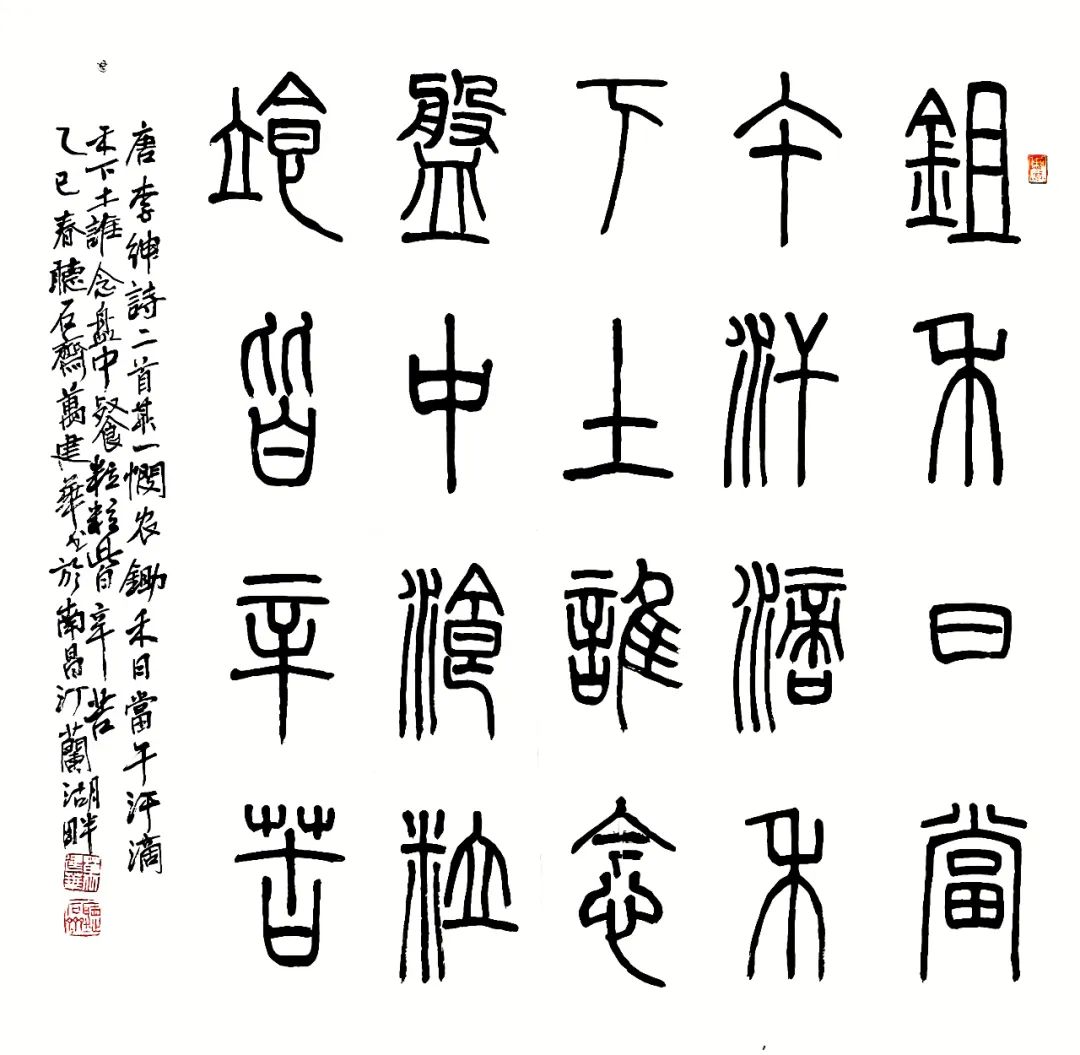 鉏禾日當
午汗滴禾
下土誰念
盤中湌粒
粒皆辛苦
唐李紳詩二首其一憫农鋤禾日當午汗滴
禾下土誰念盘中餐粒粒皆辛苦
乙巳春聽石齋萬建華书於南昌汀蘭湖畔